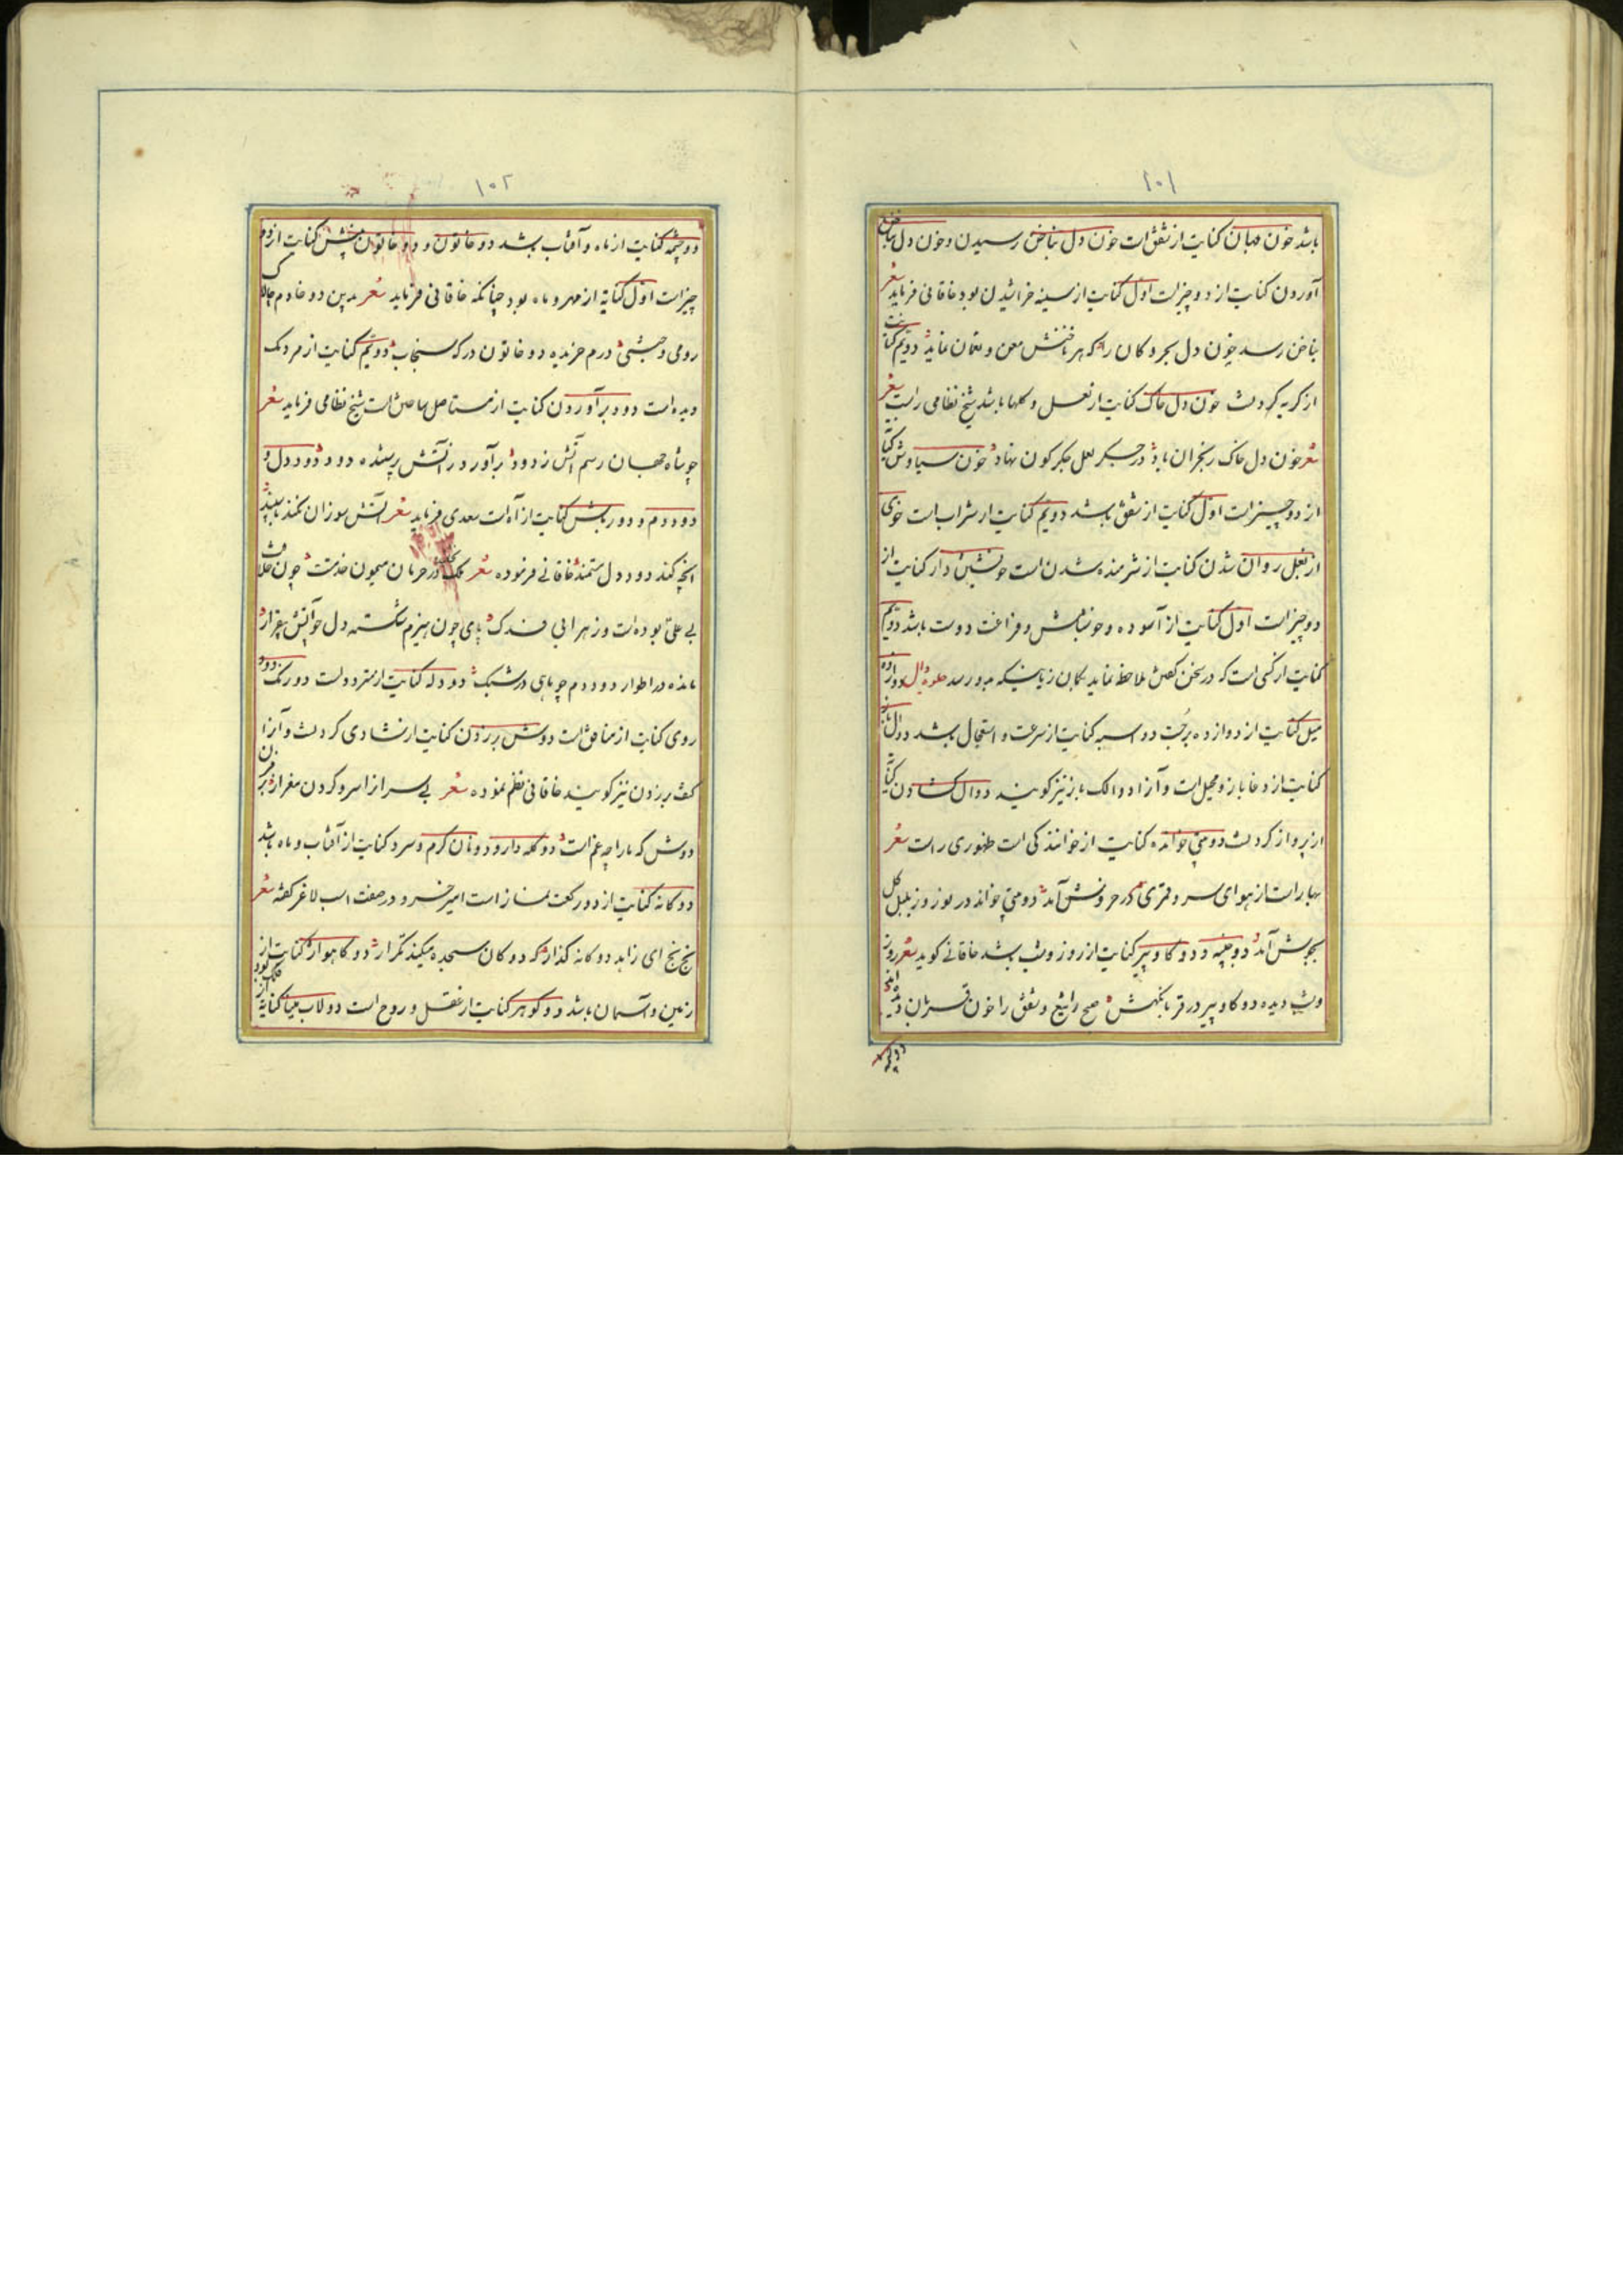 ١٠١
باشد خون جهان کنایت از شفق است خون دل بناخن رسیدن و خون دل بناخن
آوردن کنایت از دو چیز است اول کنایت از سینه خراشیدن بود خاقانی فرماید شعر
بناخن رسد خون دل بحر و کان را که هر ناخنش معن و نعمان نماید دویم کنایت
از گریه کردنست خون دل خاک کنایت از لعل و گلها باشد شیخ نظامی راست
شعر خون دل خاک ز بحران باد در جگر لعل جگرگون نهاد خون سیاوش کنایت
از دو چیز است اول کنایت از شفق باشد دویم کنایت از شراب است خوی
از بغل روان شدن کنایت از شرمنده شدن است خویشتن دار کنایت از
دو چیز است اول کنایت از آسوده و خوشباش و فراغت دوست باشد دویم
کنایت از کسی است که در سخن کسان ملاحظه نماید بکمان زیانیکه بدو رسد دوازده
میل کنایت از دوازده برجست دو اسبه کنایت از سرعت و استعجال باشد دوال باز
کنایت از دغا باز و محیل است و آنرا دوالک باز نیز گویند دوال گشادن کنایت
از پرواز کردنست دومتی خوانده کنایت از خوانندگی است ظهوری راست شعر
بهار است از هوای سرو قمری در خروش آمد دومتی خواند در نوروز بلبل گل
بجوش آمد دو جنبه و دو گاو پیر کنایت از روز و شب باشد خاقانی گوید شعر روز
و شب دیده دو گاو پیر در قربانگهش صبح را تیغ و شفق را خون قربان دیده‌اند
دو چشمه
١٠٢
دو چشمه کنایت از ماه و آفتاب باشد دو خاتون و دو خاتون بینش کنایت از دو
چیز است اول کنایة از مهر و ماه بود چنانکه خاقانی فرماید شعر بدین دو خادم چالاک
رومی و حبشی درم خریده دو خاتون خرگه سنجاب دویم کنایت از مردمک
دیده است دود برآوردن کنایت از مستاصل ساختن است شیخ نظامی فرماید شعر
چو شاه جهان رسم آتش زدود برآورد ز آتش پرستنده دود دود دل و
دود دم و دور باش کنایت از آه است سعدی فرماید شعر آتش سوزان نکند با سپند
آنچه کند دود دل مستمند خاقانی فرموده شعر در حرمان میمون خدمت چون خلافت
بی علی بوده است و زهرا بی فدک پای چون هیزم شکسته دل چو آتش بیقرار
مانده در اطوار دود دم چو ماهی در شبک دو دله کنایت از متردد است دو رنگ و دو
روی کنایت از منافق است دوش برزدن کنایت از شادی کردنست و آنرا
کتف برزدن نیز گویند خاقانی نظم نموده شعر بی سراز اسرو گردن مفراز برزن
دوش که ما را چه غم است دو کله دار و دو نان گرم و سرد کنایت از آفتاب و ماه باشد
دوگانه کنایت از دو رکعت نماز است امیر خسرو در صفت اسب لاغر گفته شعر
بخ بخ ای زاهد دوگانه گذار که دوگان سجده میکند تکرار دو گاهواره کنایت از
زمین و آسمان باشد دو گوهر کنایت از عقل و روح است دولاب مینا کنایة از فلک بود